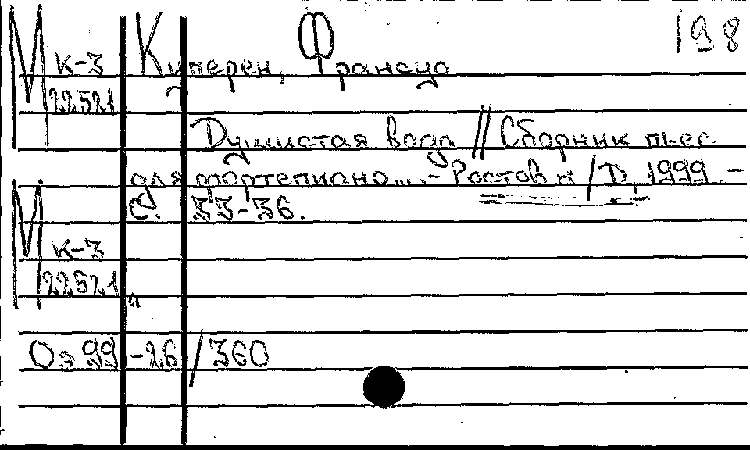 Ф 198
М к-3 Куперен, Франсуа
22521
Душистая вода // Сборник пьес
для фортепиано... - Ростов н/Д, 1999. -
С. 33-36.
М к-3
22521
Оэ 99-26/360